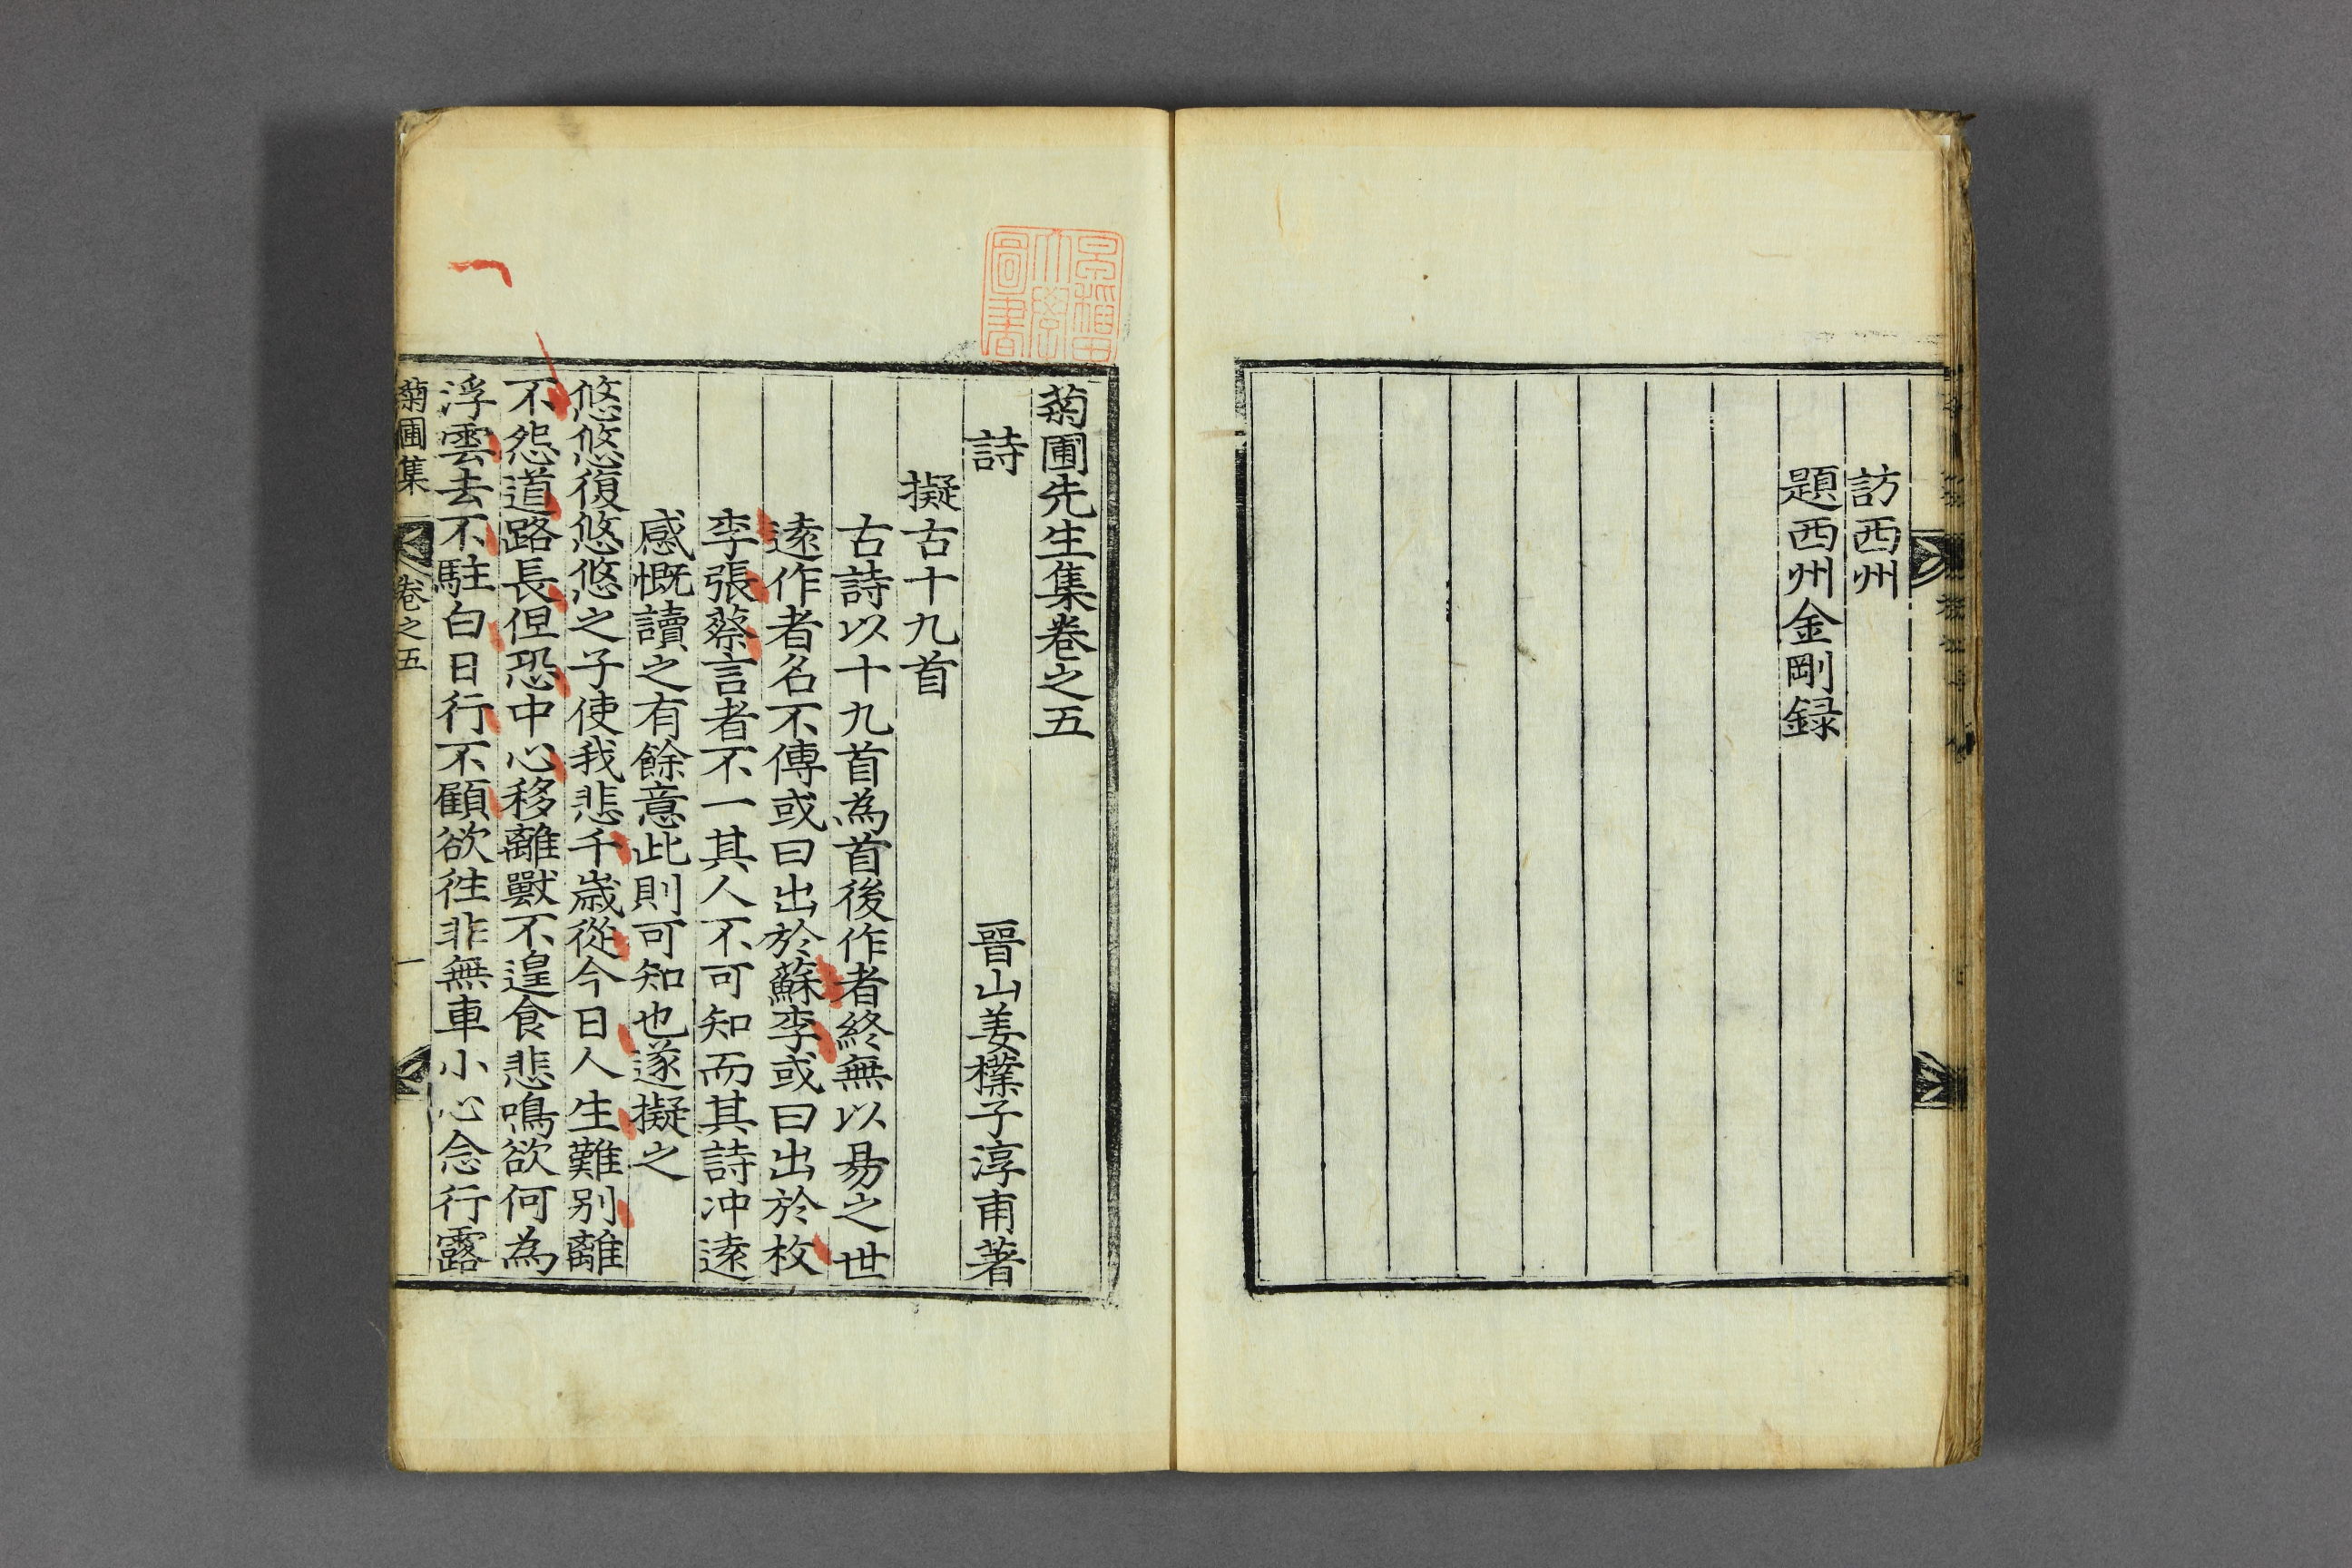 訪西州
題西州金剛録
早稲田
大學
圖書
菊圃先生集卷之五
詩　晉山姜樸子淳甫著
擬古十九首
古詩以十九首為首後作者終無以昜之世
逺作者名不傳或曰出於蘇李或曰出於枚
李張蔡言者不一其人不可知而其詩冲逺
感慨讀之有餘意此則可知也遂擬之
悠悠復悠悠之子使我悲千歳從今日人生難别離
不怨道路長但恐中心移離獸不遑食悲鳴欲何為
浮雲去不駐白日行不顧欲徃非無車小心念行露
菊圃集　卷之五　一